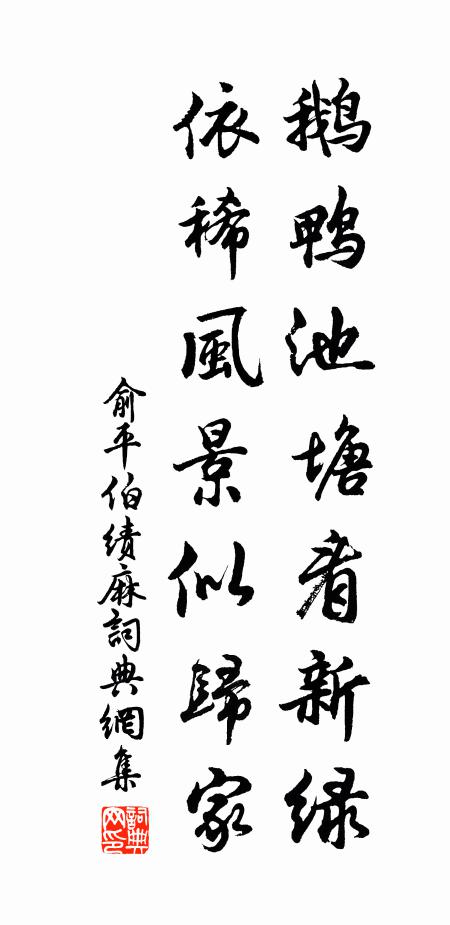 鹅鸭池塘看新绿
依稀風景似歸家
俞平伯績麻詞典網集
詞典网印